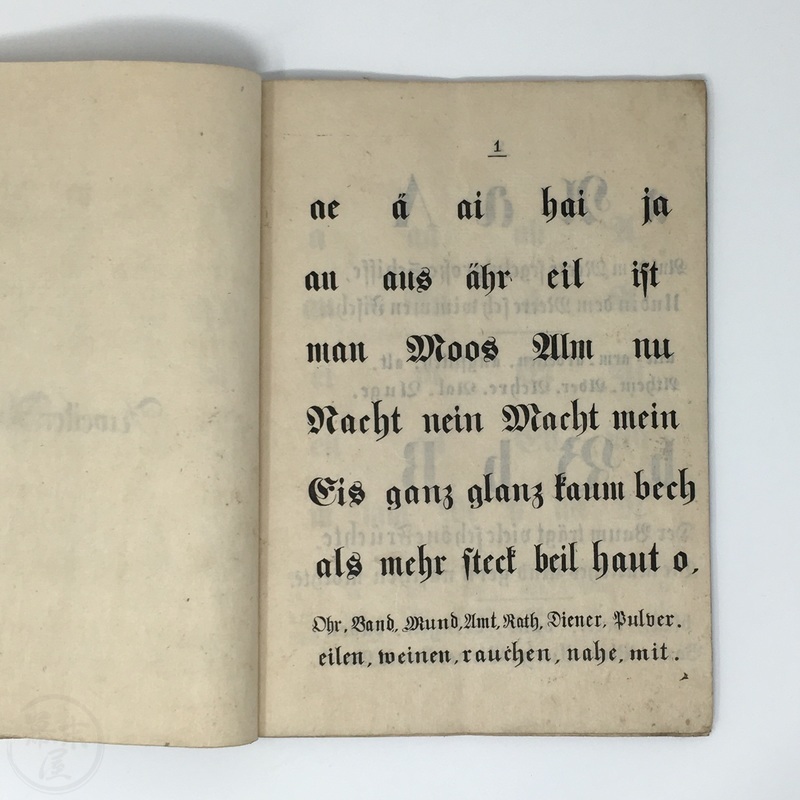 1
ae ä ai hai ja
au aus ähr eil ist
man Moos Alm nu
Nacht nein Macht mein
Eis ganz glanz kaum bech
als mehr steck beil haut o,
Ohr, Band, Mund, Amt, Rath, Diener, Pulver.
eilen, weinen, rauchen, nahe, mit.